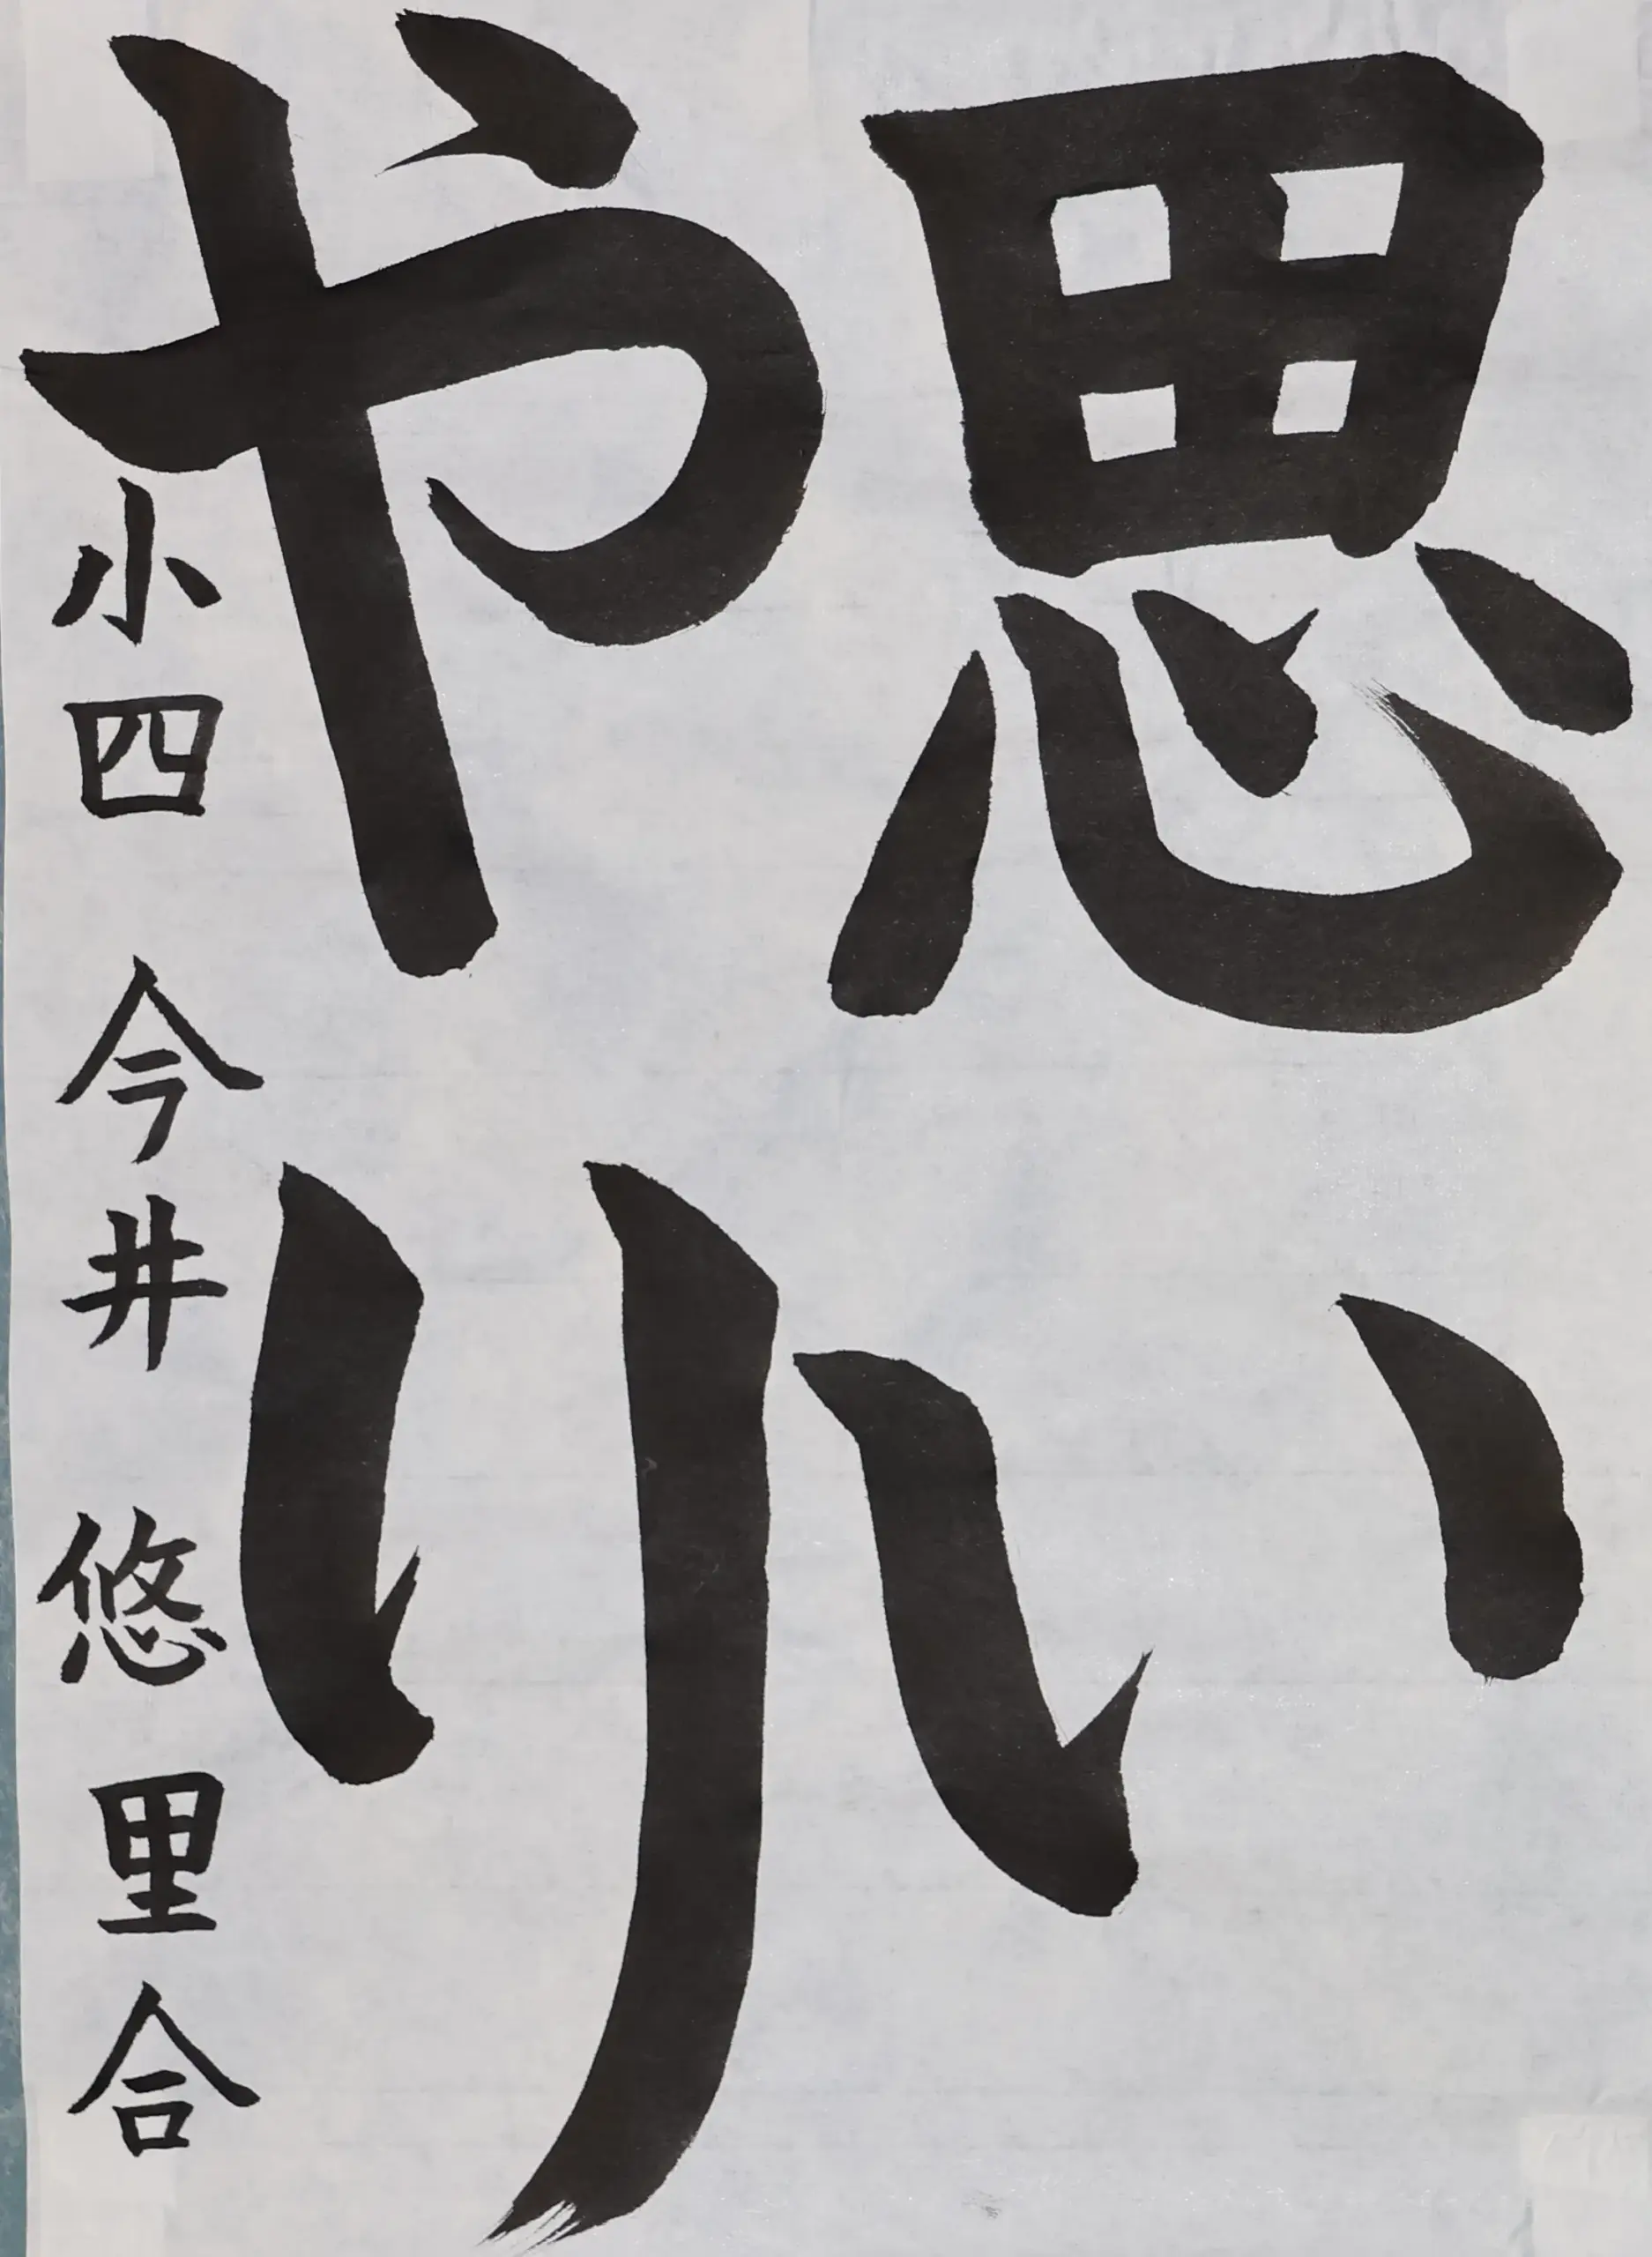 思い
やり
小四 今井 悠里合